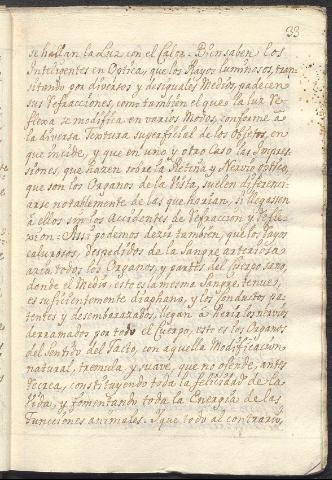 33
se hallan la Luz con el Calor. Bien saben los
Inteligentes en Optica, que los Rayos luminosos, tran-
sitando por diversos y desiguales Medios, padecen
sus Refracciones, como tambien el que la luz Re-
flexa se modifica en varios Modos, conforme â
la diversa Textura superficial de los Objetos, en
que incide, y que en uno y otro Caso las Impre-
siones, que hazen sobre la Retina y Nervio optico,
que son los Organos de la Vista, suelen diferenci-
arse notablemente de las que harian, si llegassen
â ellos sin los accidentes de Refraccion y Refle-
xion. Assi podemos dezir tambien, que los Rayos
calurosos, despedidos de la Sangre arteriosa
azia todos los Organos, y partes del Cuerpo sano,
donde el Medio, esto es la mesma Sangre tenue,
es suficientemente diaphano, y los Conductos pa-
tentes y desembarazados, llegan â herir los nervios
derramados por todo el Cuerpo, esto es los Organos
del Sentido del Tacto, con aquella Modificacion
natural, tremula, y suave, que no ofende, antes
recrea, constituyendo toda la felicidad de la
Vida, y fomentando toda la Energia de las
Funciones animales. Y que todo al contrario,